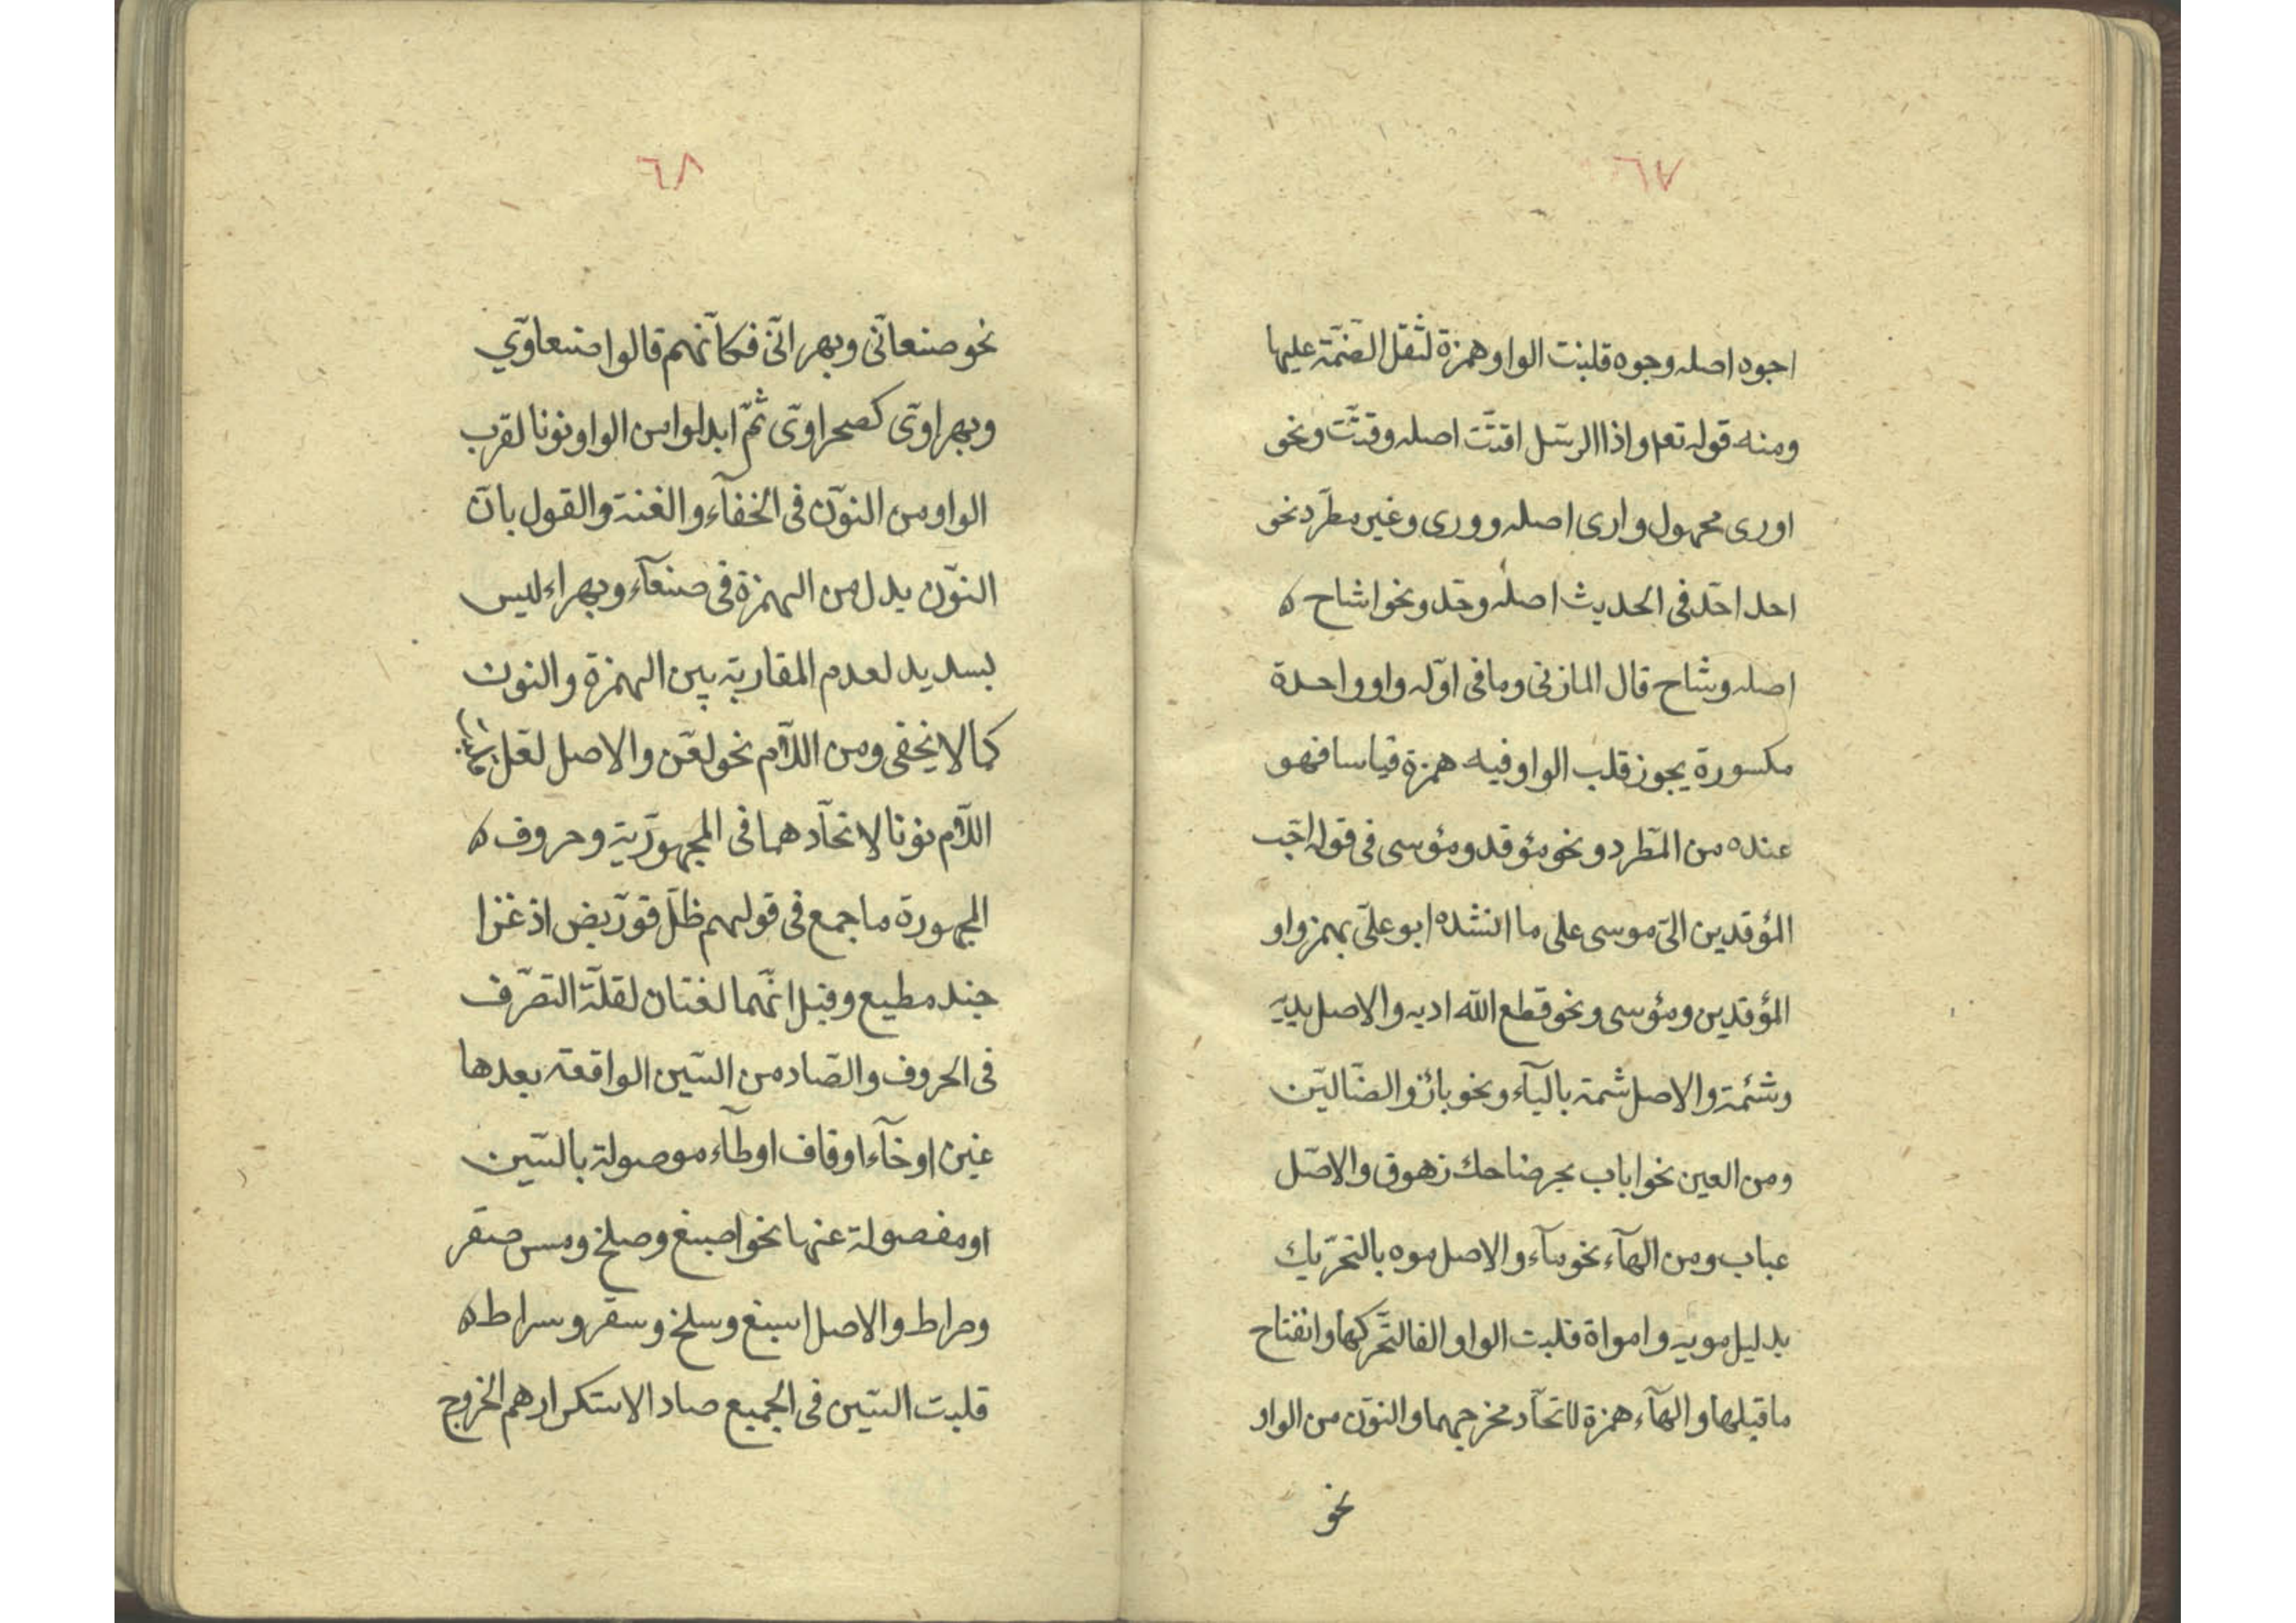 ٦٧
اجوه اصله وجوه قلبت الواو همزة لثقل الضّمّة عليها
ومنه قوله تعم واذا الرسل اقتّت اصله وقتّت ونحو
اورى مجهول وارى اصله وورى وغير مطّرد نحو
احد احّد فى الحديث اصله وحّد ونحو اشاح ه
اصله وشاح قال المازنى وما فى اوّله واو واحدة
مكسورة يجوز قلب الواو فيه همزة قياسا فهو
عنده من المطّرد ونحو مؤقد ومؤسى فى قوله احّب
المؤقدين الىّ موسى على ما انشده ابو علىّ بهمز واو
المؤقدين ومؤسى ونحو قطع الله اديه والاصل يديه
وشئمة والاصل شمة باليآء ونحو بائز والضّالّين
ومن العين نحو اباب بحر ضاحك زهوق والاصّل
عباب ومن الهآء نحو مآء والاصل موه بالتحرّيك
بدليل مويه وامواه قلبت الواو الفا لتحّركها وانفتاح
ما قبلها والهآء همزة لاتحآد مخرجهما والنوّن من الواو
نحو
٦٨
نحو صنعانّى وبهرانّى فكانّهم قالوا صنعاوّي
وبهراوّى كصحراوّى ثمّ ابدلوا من الواو نونا لقرب
الواو من النوّن فى الخفآء والغنة والقول بانّ
النوّن بدل من الهمزة فى صنعآء وبهراء ليس
بسديد لعدم المقاربة بين الهمزة والنون
كما لا يخفى ومن اللاّم نحو لعّن والاصل لعّل
اللاّم نونا لاتحآدهما فى المجهورّية وحروف ه
المجهورة ما جمع فى قولهم ظلّ قوّ ربض اذ غزا
جند مطيع وقيل انّهما لغتان لقلّة التصرّف
فى الحروف والصّاد من السّين الواقعة بعدها
غين او خآء او قاف او طآء موصولة بالسّين
او مفصولة عنها نحو اصبغ وصلخ ومس صقر
وصراط والاصل اسبغ وسلخ وسقر وسراط ه
قلبت السّين فى الجميع صادا لاستكرارهم الخروج